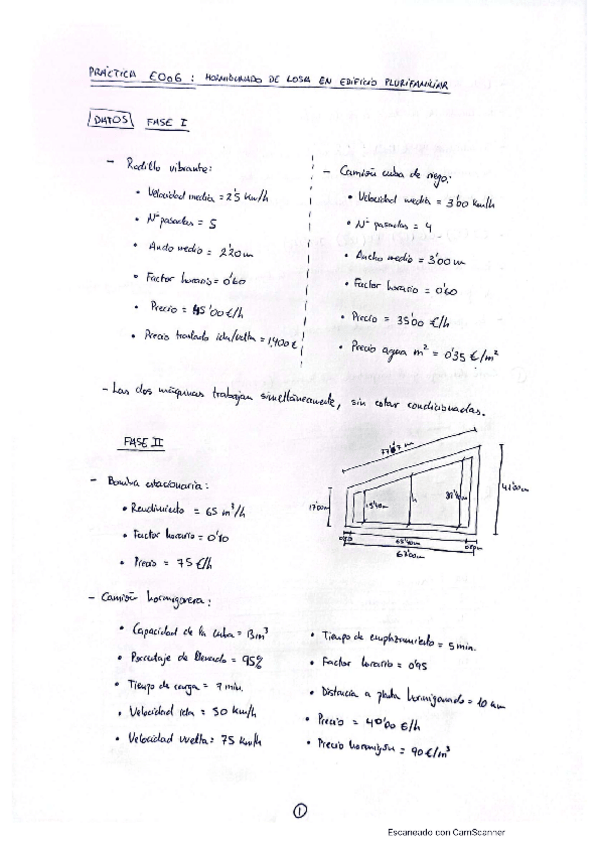 PRÁCTICA E006 : HORMIGONADO DE LOSA EN EDIFICIO PLURIFAMILIAR
DATOS FASE I
- Rodillo vibrante:
• Velocidad media = 2'5 km/h
• Nº pasadas = 5
• Ancho medio = 2'20 m
• Factor horario = 0'60
• Precio = 45'00 €/h
• Precio traslado ida/vuelta = 1.400 €
- Camión cuba de riego:
• Velocidad media = 3'00 km/h
• Nº pasadas = 4
• Ancho medio = 3'00 m
• Factor horario = 0'60
• Precio = 35'00 €/h
• Precio agua m² = 0'35 €/m²
- Las dos máquinas trabajan simultáneamente, sin estar condicionadas.
FASE II
- Bomba estacionaria:
• Rendimiento = 65 m³/h
• Factor horario =
• Precio = 75 €/h
17'00m
h
63'00m
- Camión hormigonera:
• Capacidad de la cuba = 13m³
• Porcentaje de llenado = 95%
• Tiempo de carga = 7 min.
• Velocidad ida = 50 km/h
• Velocidad vuelta = 75 km/h
• Tiempo de emplazamiento = 5 min.
• Factor horario = 0'95
• Distancia a planta hormigonado = 10 km
• Precio = 40'00 €/h
• Precio hormigón = 90 €/m³
1
Escaneado con CamScanner